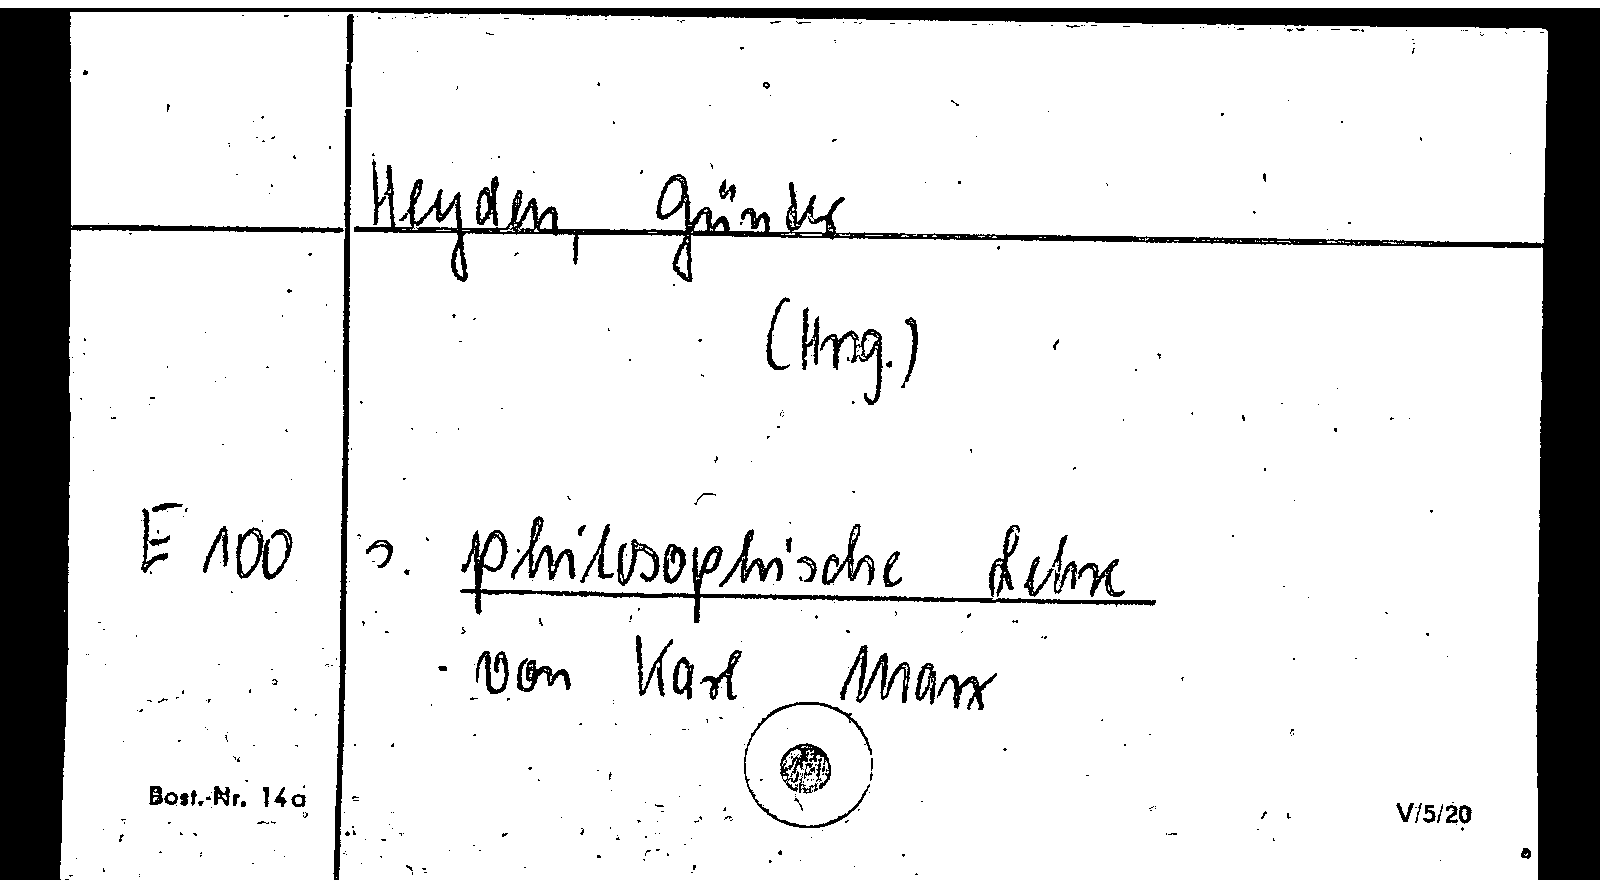 Heyden, Günter
(Hrsg.)
E 100 s. philosophische Lehre
von Karl Marx
Best.-Nr. 14a V/5/20